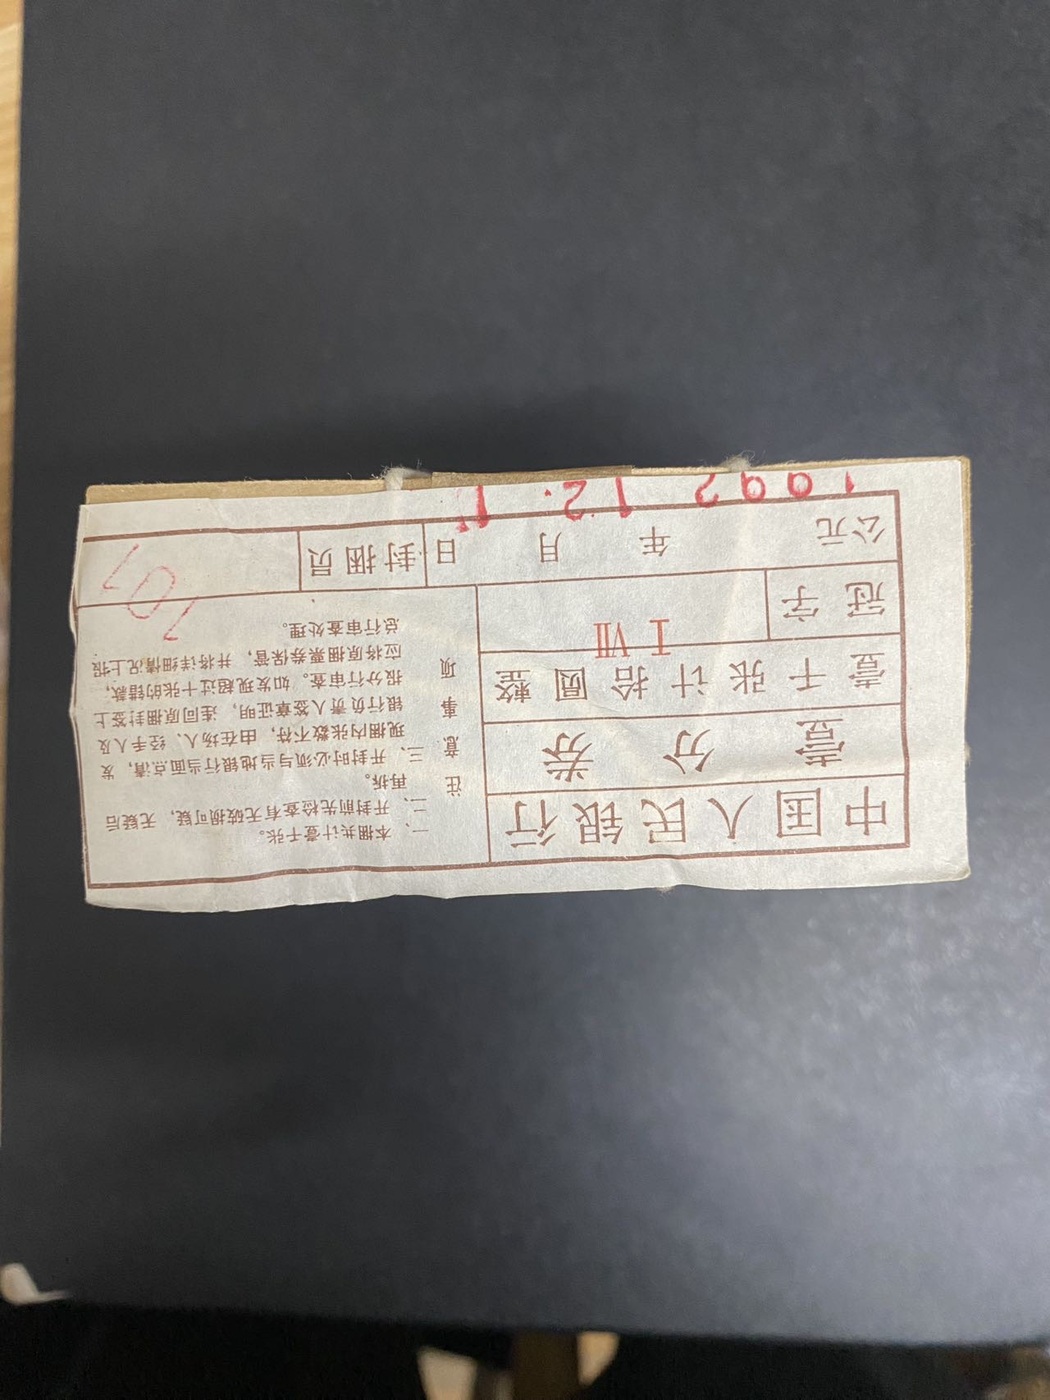 中国人民银行
壹分券
壹千张计拾圆整
冠字 Ⅰ Ⅶ
公元 年 月 日 封捆员
1992 12.
注意事项
一、本捆共计壹千张。
二、开封前先检查有无破损可疑，无疑后
再拆。
三、开封时必须与当地银行当面点清，发
现捆内张数不符，由在场人、经手人及
银行负责人签章证明，连同原捆封签上
报分行审查。如发现超过十张的错款，
应将原捆票券保管，并将详细情况上报
总行审查处理。